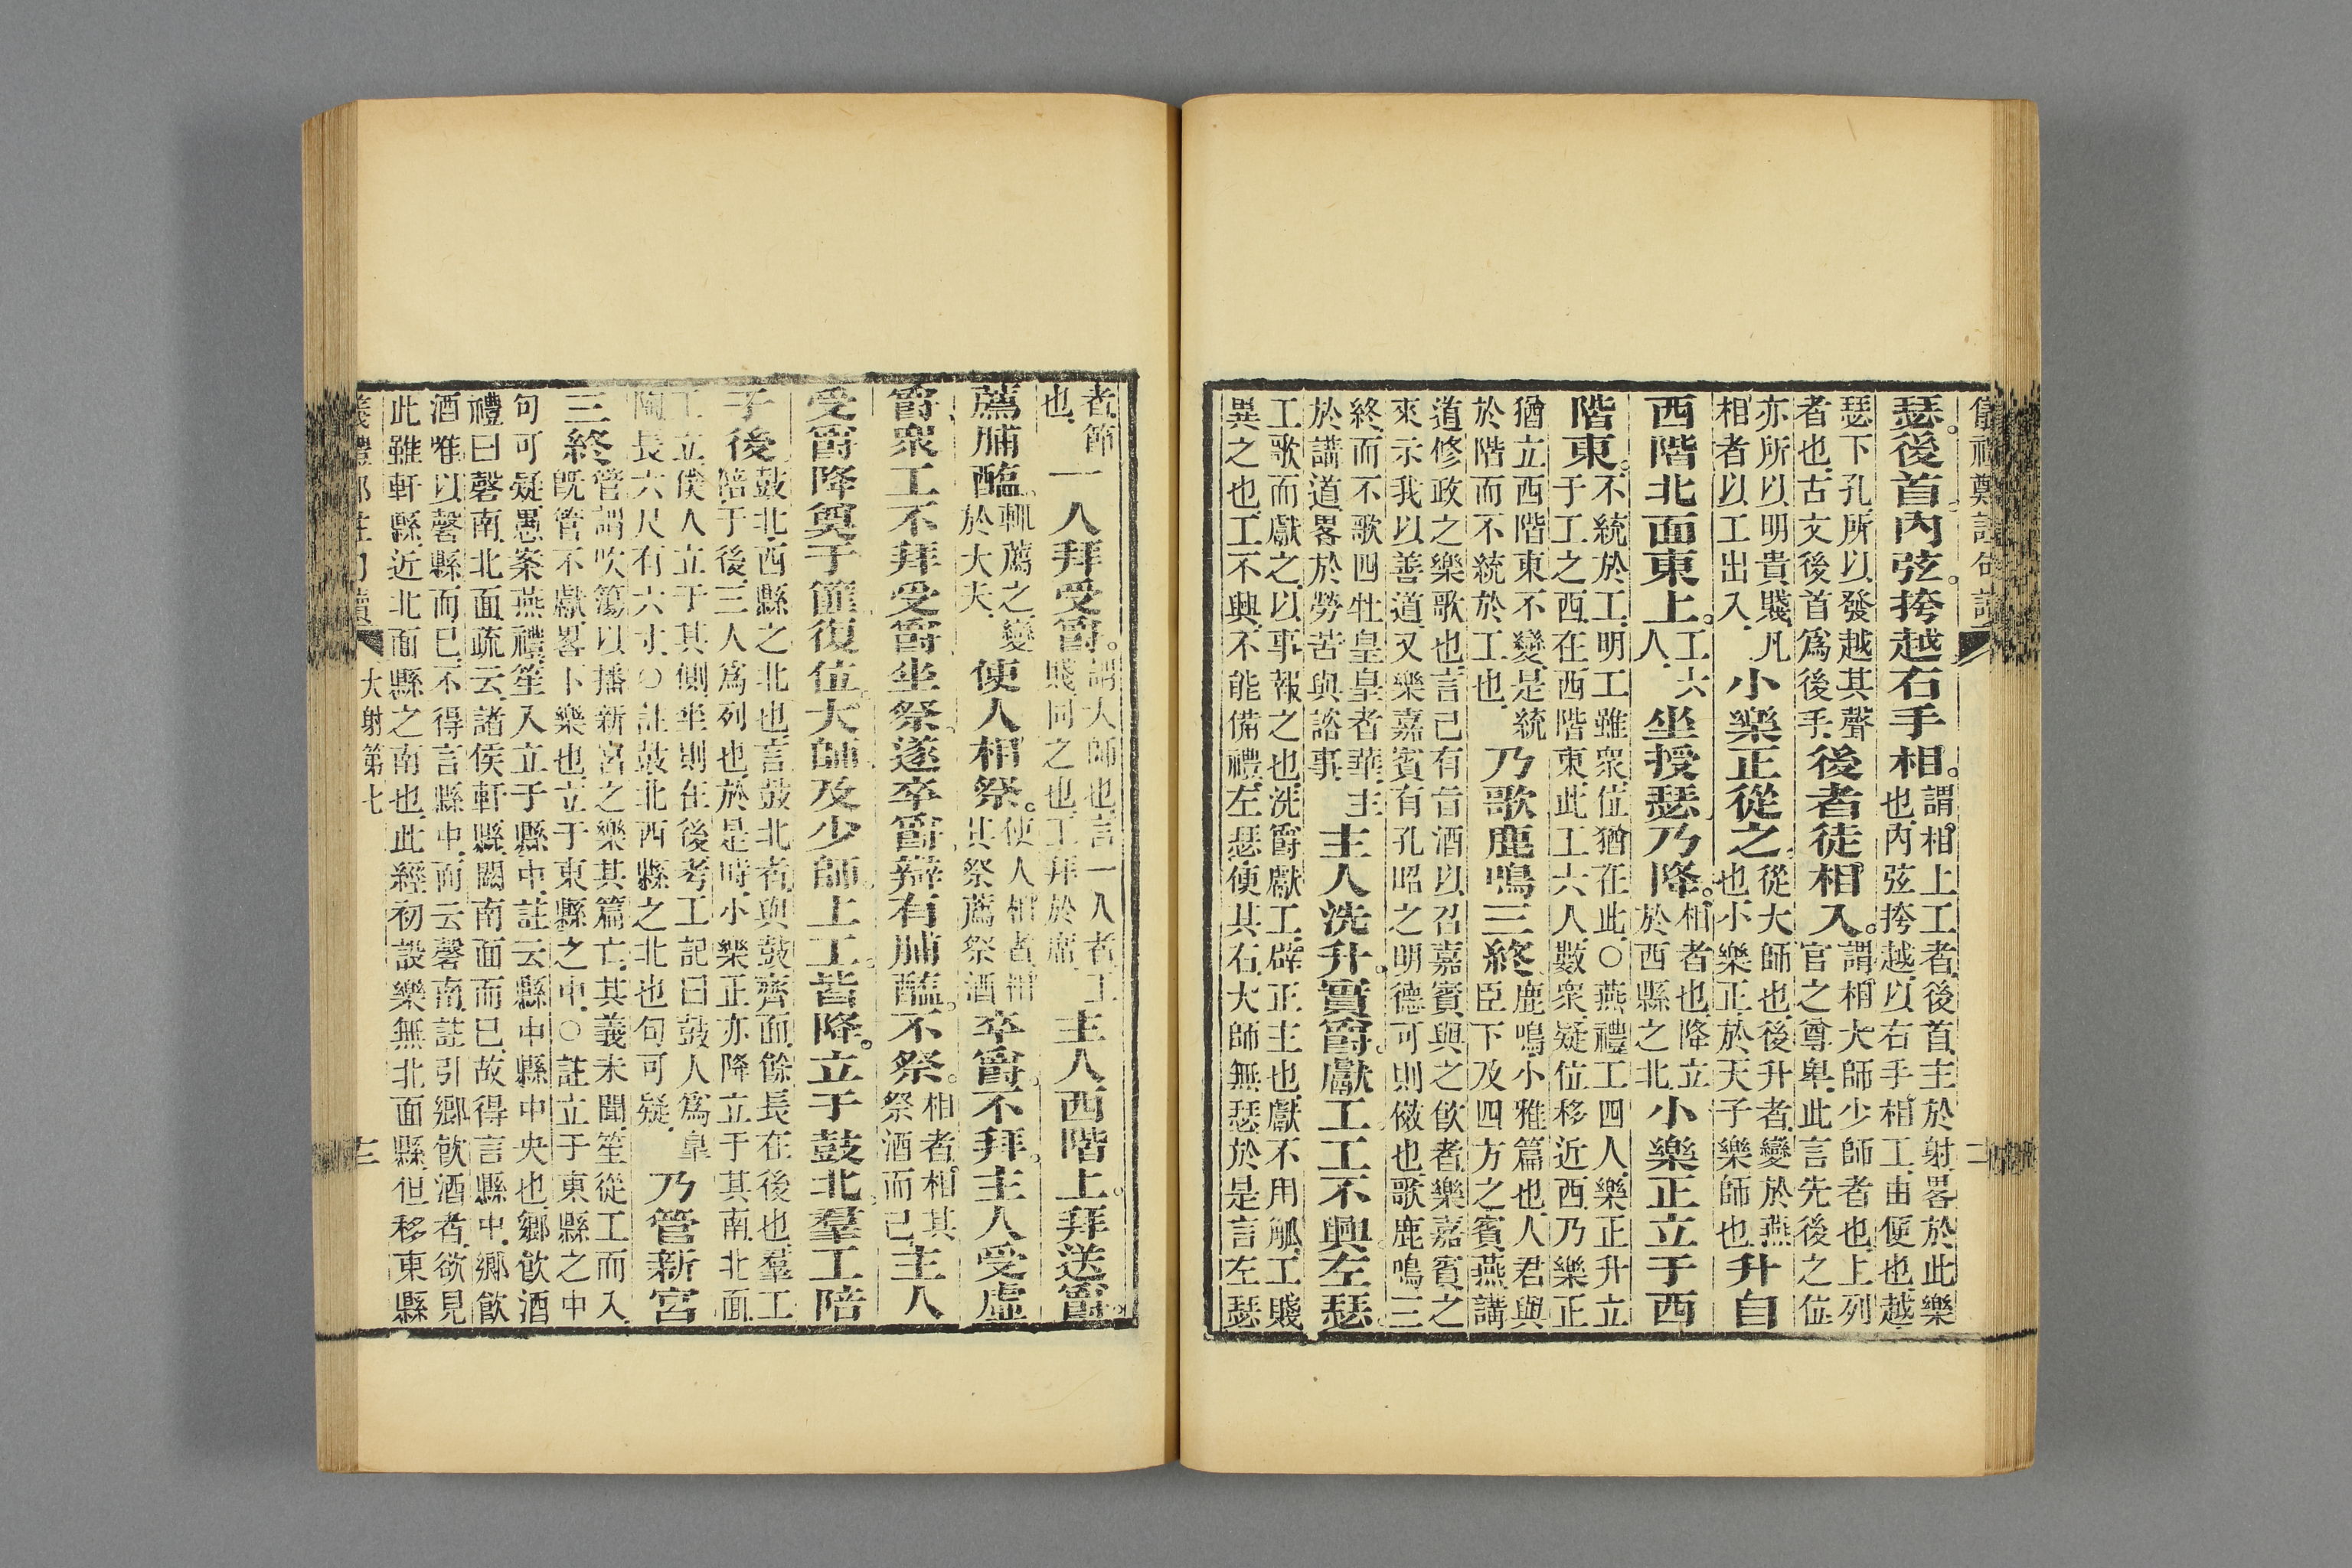 瑟。後首。內弦。挎越右手相。謂相上工者後首主於射畧於此樂
也內弦挎越以右手相工由便也越
瑟下孔所以發越其聲
者也古文後首爲後手後者徒相入。謂相大師少師者也上列
官之尊卑此言先後之位
亦所以明貴賤凡
相者以工出入小樂正從之從大師也後升者變於燕
也小樂正於天子樂師也升自
西階北面東上。工六
人坐授瑟乃降。相者也降立
於西縣之北小樂正立于西
階東。不統於工明工雖衆位猶在此○燕禮工四人樂正升立
于工之西在西階東此工六人數衆疑位移近西乃樂正
猶立西階東不變是統
於階而不統於工也乃歌鹿鳴三終鹿鳴小雅篇也人君與
臣下及四方之賓燕講
道修政之樂歌也言己有旨酒以召嘉賓與之飮者樂嘉賓之
來示我以善道又樂嘉賓有孔昭之明德可則傚也歌鹿鳴三
終而不歌四牡皇皇者華主
於講道畧於勞苦與諮事主人洗升。實爵。獻工工不興左瑟。
工歌而獻之以事報之也洗爵獻工辟正主也獻不用觚工賤
異之也工不興不能備禮左瑟便其右大師無瑟於是言左瑟
者節
也一人拜受爵。謂大師也言一人者工
賤同之也工拜於席主人西階上。拜送爵
薦脯醢。輒薦之變
於大夫使人相祭。使人相者相
其祭薦祭酒卒爵。不拜。主人受虛
爵衆工不拜受爵坐祭遂卒爵辯有脯醢。不祭。相者相其
祭酒而已主人
受爵降奠于篚復位大師及少師上工。皆降。立于鼓北羣工陪
于後鼓北西縣之北也言鼓北者與鼓齊面餘長在後也羣工
陪于後三人爲列也於是時小樂正亦降立于其南北面
工立僕人立于其側坐則在後考工記曰鼓人爲臯
陶長六尺有六寸○註鼓北西縣之北也句可疑乃管新宮
三終管謂吹簜以播新宮之樂其篇亡其義未聞笙從工而入
既管不獻畧下樂也立于東縣之中○註立于東縣之中
句可疑愚案燕禮笙入立于縣中註云縣中縣中央也鄉飮酒
禮曰磬南北面疏云諸侯軒縣闕南面而已故得言縣中鄉飮
酒惟以磬縣而已不得言縣中而云磬南註引鄉飮酒者欲見
此雖軒縣近北面縣之南也此經初設樂無北面縣但移東縣
大射第七